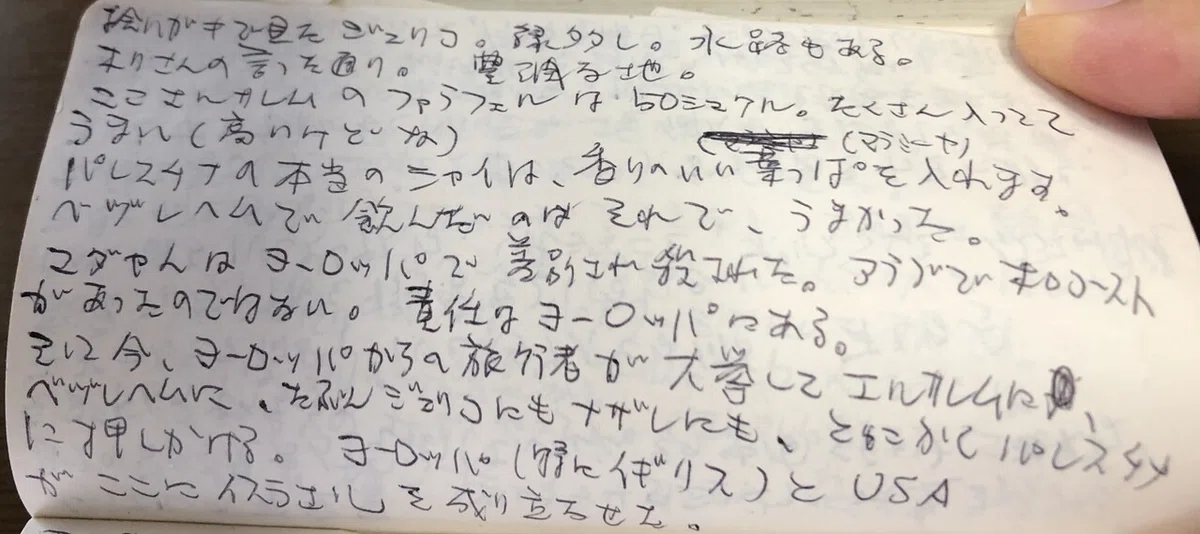 絵はがきで見たジェリコ。緑多し。水路もある。
の言った通り。豊穣な地。
ここエルサレムのファラフェルは50シェケル。たくさん入ってて
うまい(高いけどな) (マラミーヤ)
パレスチナの本当のシャイは、香りのいい葉っぱを入れます。
ベツレヘムで飲んだのはそれで、うまかった。
ユダヤ人はヨーロッパで差別され殺された。アラブでホロコースト
があったのではない。責任はヨーロッパにある。
そして今、ヨーロッパからの旅行者が大挙してエルサレムに、
ベツレヘムに、たぶんジェリコにもナザレにも、とにかくパレスチナ
に押しかける。ヨーロッパ(特にイギリス)とUSA
がここにイスラエルを成り立たせた。